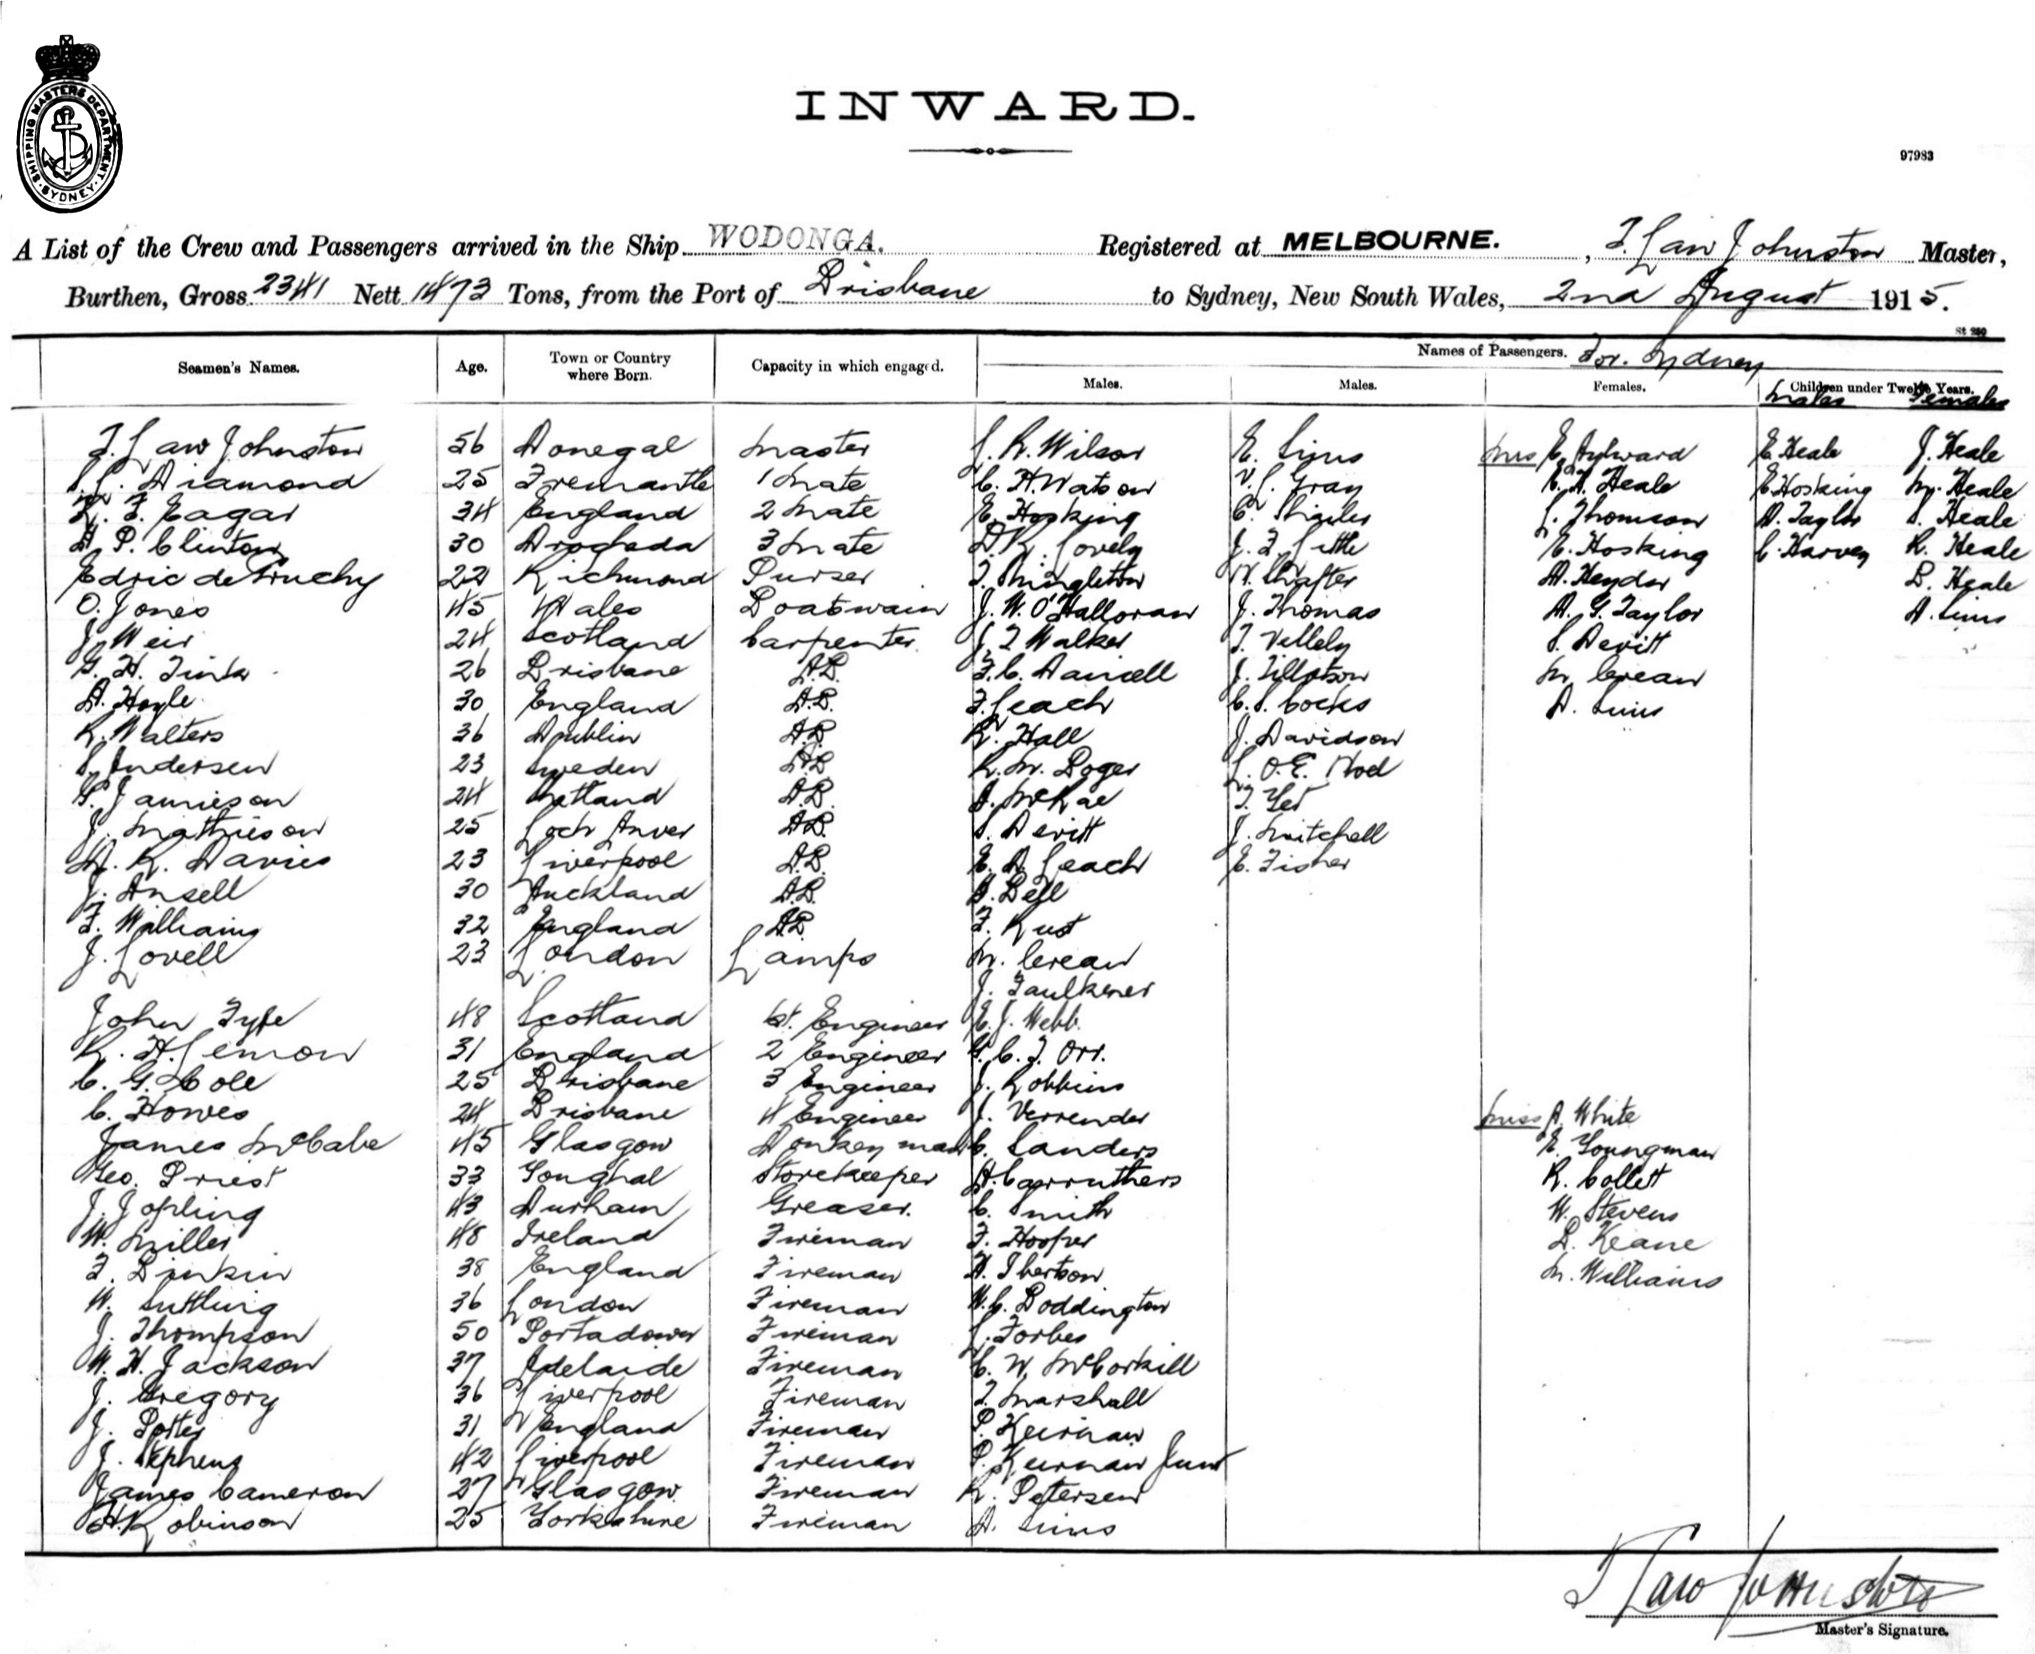 INWARD.
SHIPPING MASTERS DEPARTMENT. SYDNEY
97983
A List of the Crew and Passengers arrived in the Ship WODONGA. Registered at MELBOURNE. , T. Law Johnston Master,
Burthen, Gross 2341 Nett 1473 Tons, from the Port of Brisbane to Sydney, New South Wales, 2nd August 1915.
Seamen's Names. Age. Town or Country where Born. Capacity in which engaged. Names of Passengers. For Sydney
Males. Males. Females. Children under Twelve Years.
Males Females
T. Law Johnston 56 Donegal Master L. R. Wilson E. Sims Mrs E. Aylward E. Heale J. Heale
Diamond 25 Fremantle 1 Mate C. H. Watson V. L. Gray Heale E. Hosking M. Heale
Eagar 34 England 2 Mate E. Hosking C. L. Thomson A. Taylor S. Heale
A. P. Clinton 30 Drogheda 3 Mate D. R. Lovely J. F. Little E. Hosking C. Harvey R. Heale
Edric de Gruchy 22 Richmond Purser T. Shafter B. Heale
O. Jones 45 Wales Boatswain J. W. O'Halloran J. Thomas A. G. Taylor A. Sims
J. Weir 24 Scotland Carpenter. J. T. Walker T. Vellely S. Devitt
G. H. Tink 26 Brisbane A.B. F. C. J. Tillotson M. Crean
A. Hoyle 30 England A.B. F. Leach C. S. Cocks A. Sims
R. Walters 36 Dublin A.B. R. Hall J. Davidson
S. Andersen 23 Sweden A.B. R. M. Boger L. O. E.
G. Jamieson 24 Shetland A.B. A. McRae
J. Mathieson 25 Loch Inver A.B. S. Devitt J. Mitchell
R. Davies 23 Liverpool A.B. E. A. Leach E. Fisher
J. Ansell 30 Auckland A.B. A. Bell
F. Williams 32 England A.B. F. Rust
J. Lovell 23 London Lamps M. Crean
J. Faulkener
John Fyfe 48 Scotland 1st. Engineer E. J. Webb.
R. H. Lemon 31 England 2 Engineer G. C. J. Orr.
C. G. Cole 25 Brisbane 3 Engineer J. Robbins
C. Howes 24 Brisbane 4 Engineer J. Verrender Miss A. White
James McCabe 45 Glasgow Donkeyman C. Sanders E. Youngman
Geo. Priest 33 Youghal Storekeeper A. Carruthers R. Collett
J. Jopling 43 Durham Greaser. C. Smith W. Stevens
W. Miller 48 Ireland Fireman F. Hooper B. Keane
F. 38 England Fireman A. Ibertson M. Williams
W. Suttling 36 London Fireman W. C. Boddington
J. Thompson 50 Portadown Fireman L. Forbes
W. H. Jackson 37 Adelaide Fireman C. W. McCorkill
J. Gregory 36 Liverpool Fireman T. Marshall
J. Potter 31 England Fireman P. Keirnan
J. Stephens 42 Liverpool Fireman P. Keirnan Junr
James Cameron 27 Glasgow. Fireman R. Petersen
H. Robinson 25 Yorkshire Fireman A. Sims
T Law Johnston
Master's Signature.